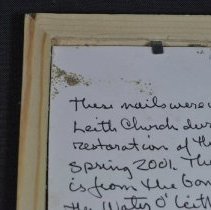 These nails were
Leith Church dur
restoration of th
spring 2001. Th
is from the ban
the Water O' Leith